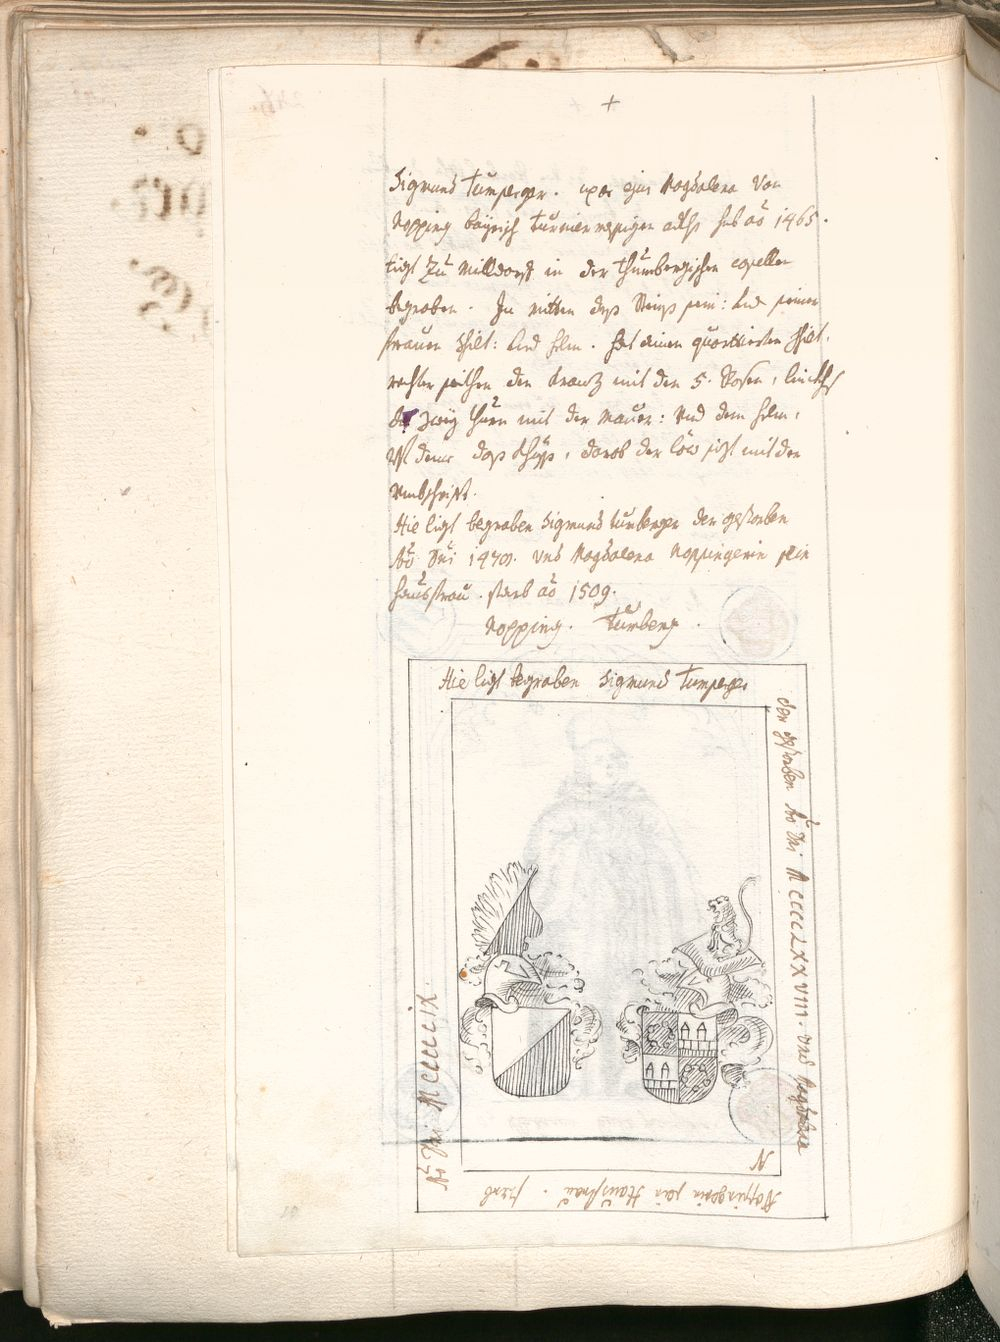 +
Sigmund Tumperger. uxor ejus Magdalena Von
Nopping bayrisch Turnier messigen adls hab aõ 1465.
ligt Zu Milldorff in der Thumbergischen capellen
begraben. In mitten dess Stains sein: und seiner
frauen Schilt: und helm. hat einen quartierten Schilt,
rechter seithen den Krantz mit den 5. Rosen, linckhs
zwey thürn mit der Maur: Und dem helm,
ist deme dass Küss, darob der löw sizt mit der
Umbschrifft.
Hie ligt begraben Sigmund Tumberger der gestorben
Aõ Dni 147. und Magdalena Noppingerin sein
Haussfrau. starb aõ 1509.
Nopping. Tumberg.
Hie ligt begraben Sigmund Tumperger
der gestorben Aõ Dni MCCCCLXXVIII. und Magdalena
N
Noppingerin sein Haussfrau. starb
Aõ Dni MCCCCCIX.